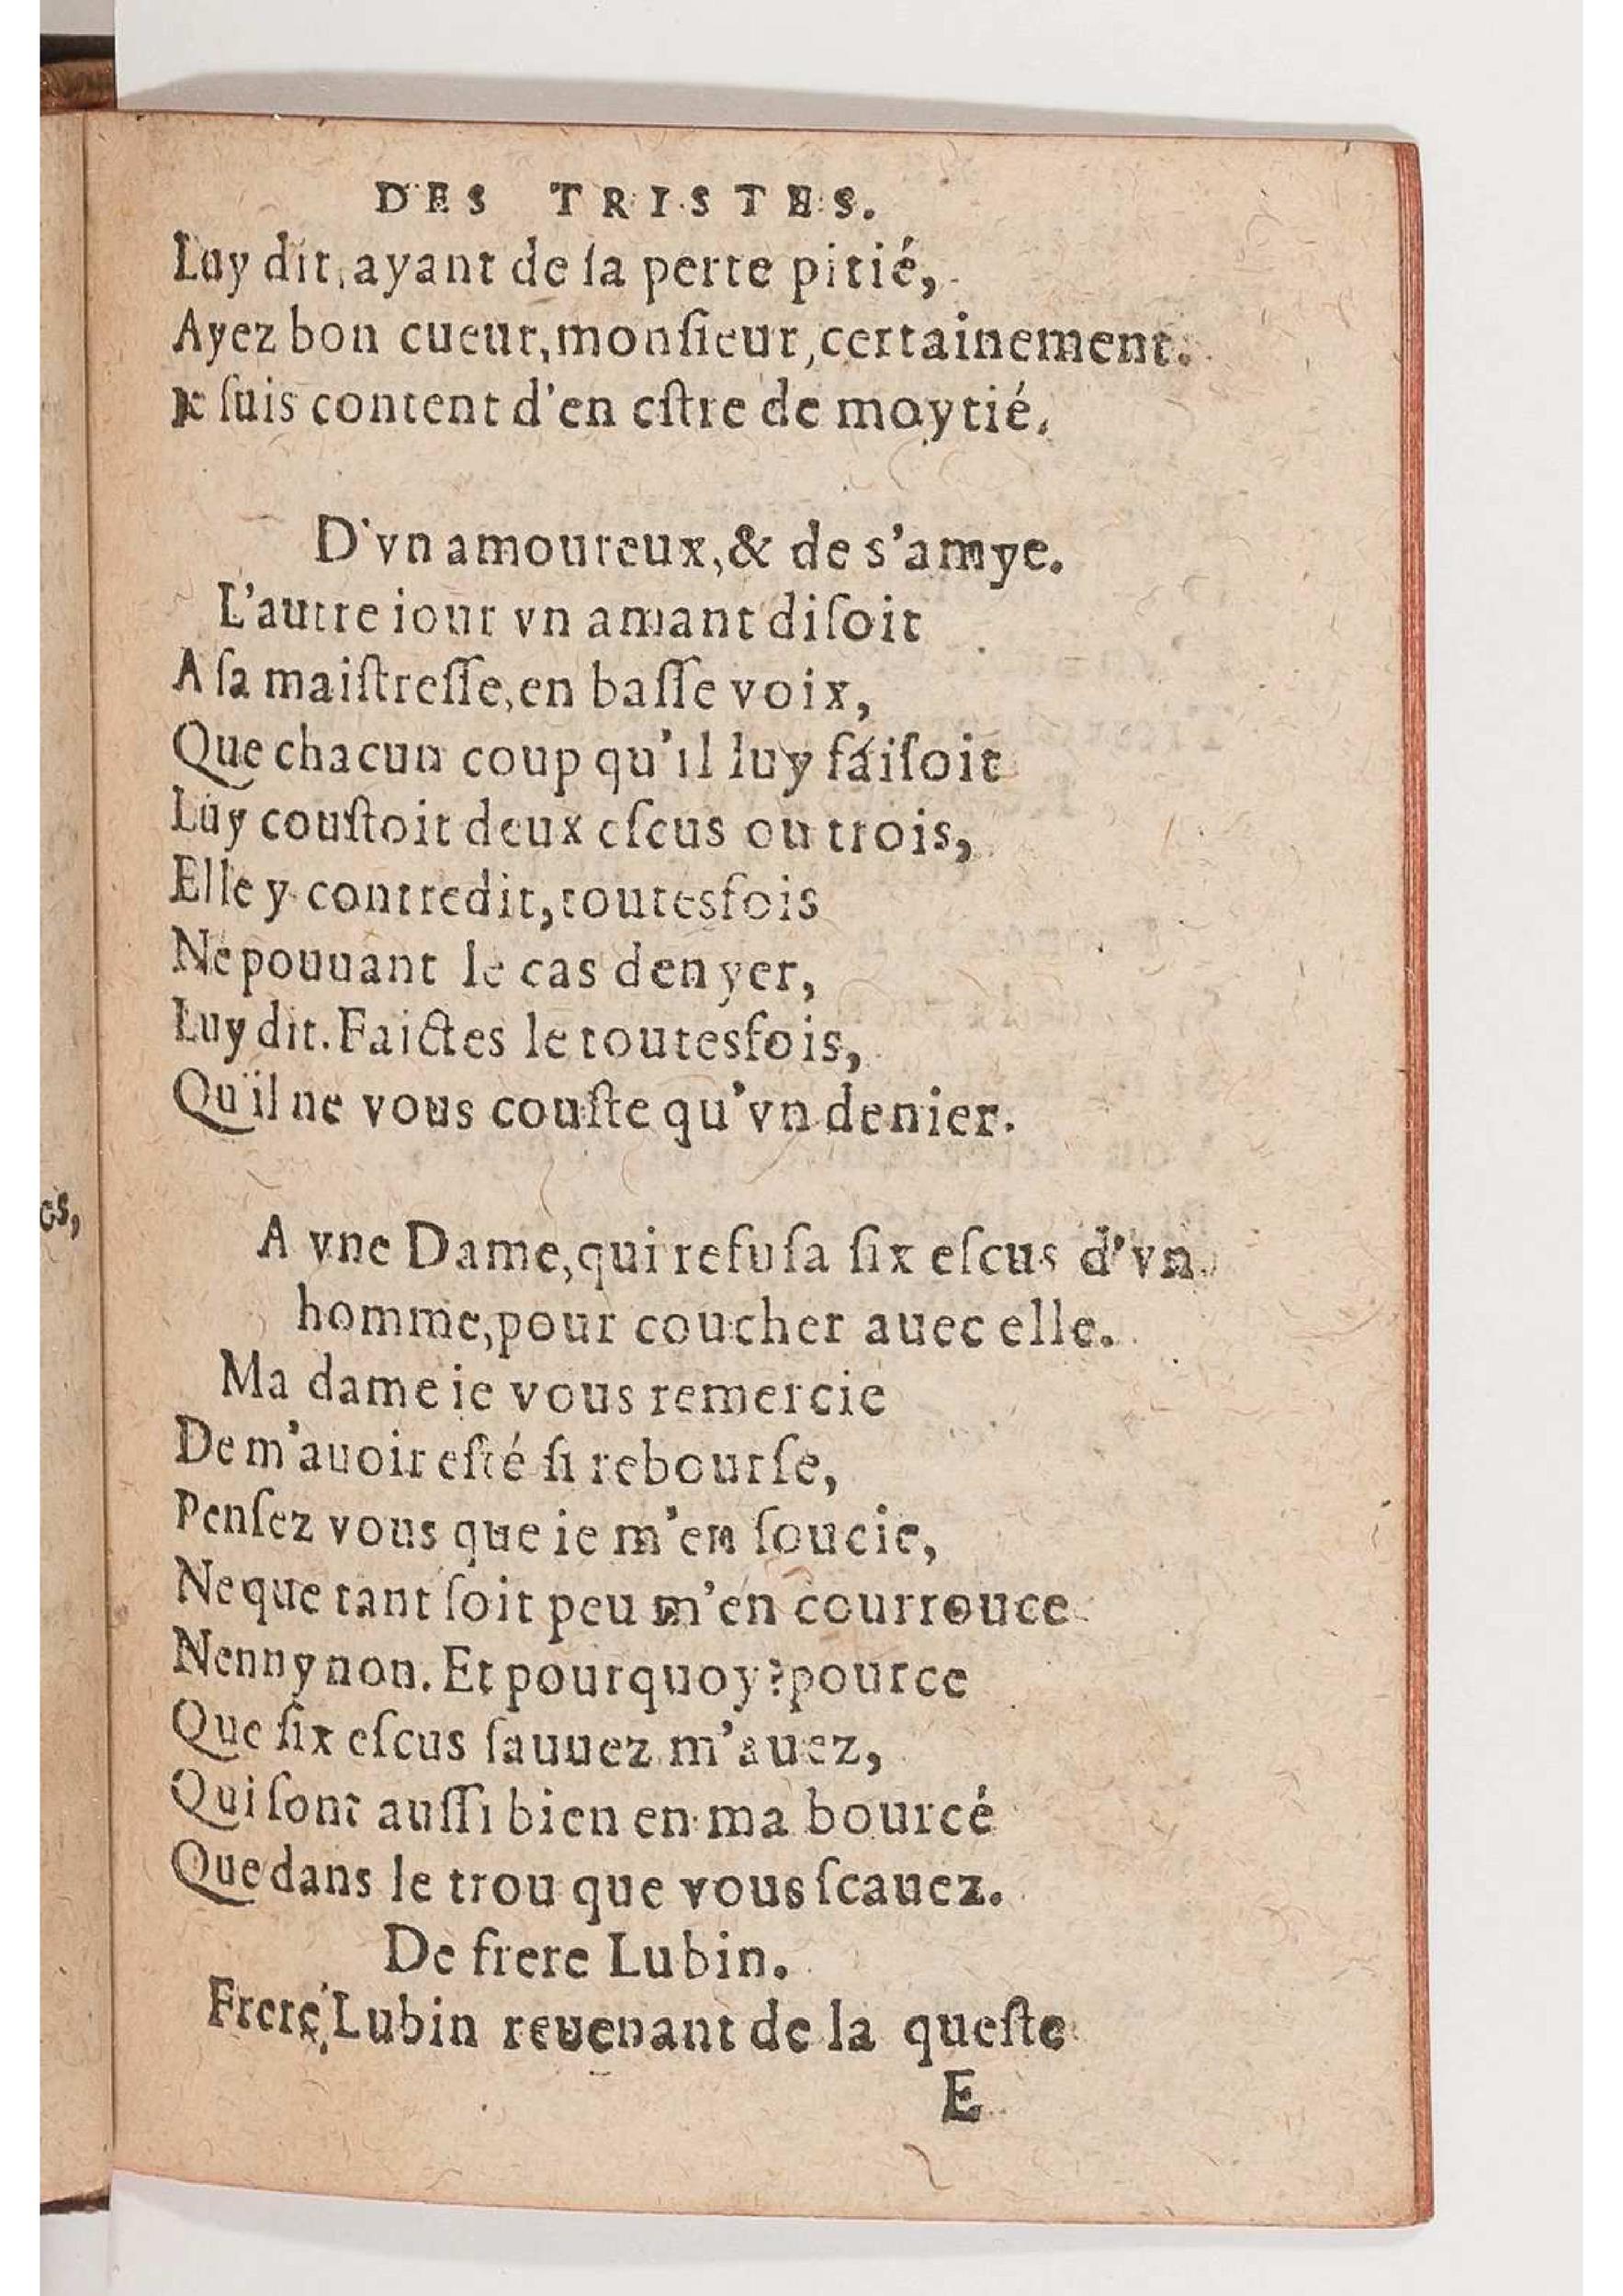 DES TRISTES.
Luy dit, ayant de sa perte pitié,
Ayez bon cueur, monſieur, certainement.
Ie ſuis content d'en eſtre de moytié.
D'vn amoureux, & de s'amye.
L'autre iour vn amant diſoit
A ſa maiſtreſſe, en baſſe voix,
Que chacun coup qu'il luy faiſoit
Luy couſtoit deux eſcus ou trois,
Elle y contredit, toutesfois
Ne pouuant le cas denyer,
Luy dit. Faictes le toutesfois,
Qu'il ne vous couſte qu'vn denier.
os,
A vne Dame, qui refuſa ſix eſcus d'vn
homme, pour coucher auec elle.
Ma dame ie vous remercie
De m'auoir eſté ſi rebourſe,
Penſez vous que ie m'en ſoucie,
Ne que tant ſoit peu m'en courrouce
Nenny non. Et pourquoy? pource
Que ſix eſcus ſauuez m'auez,
Qui ſont auſſi bien en ma bourcé
Que dans le trou que vous ſcauez.
De frere Lubin.
Frere Lubin reuenant de la queſte
E